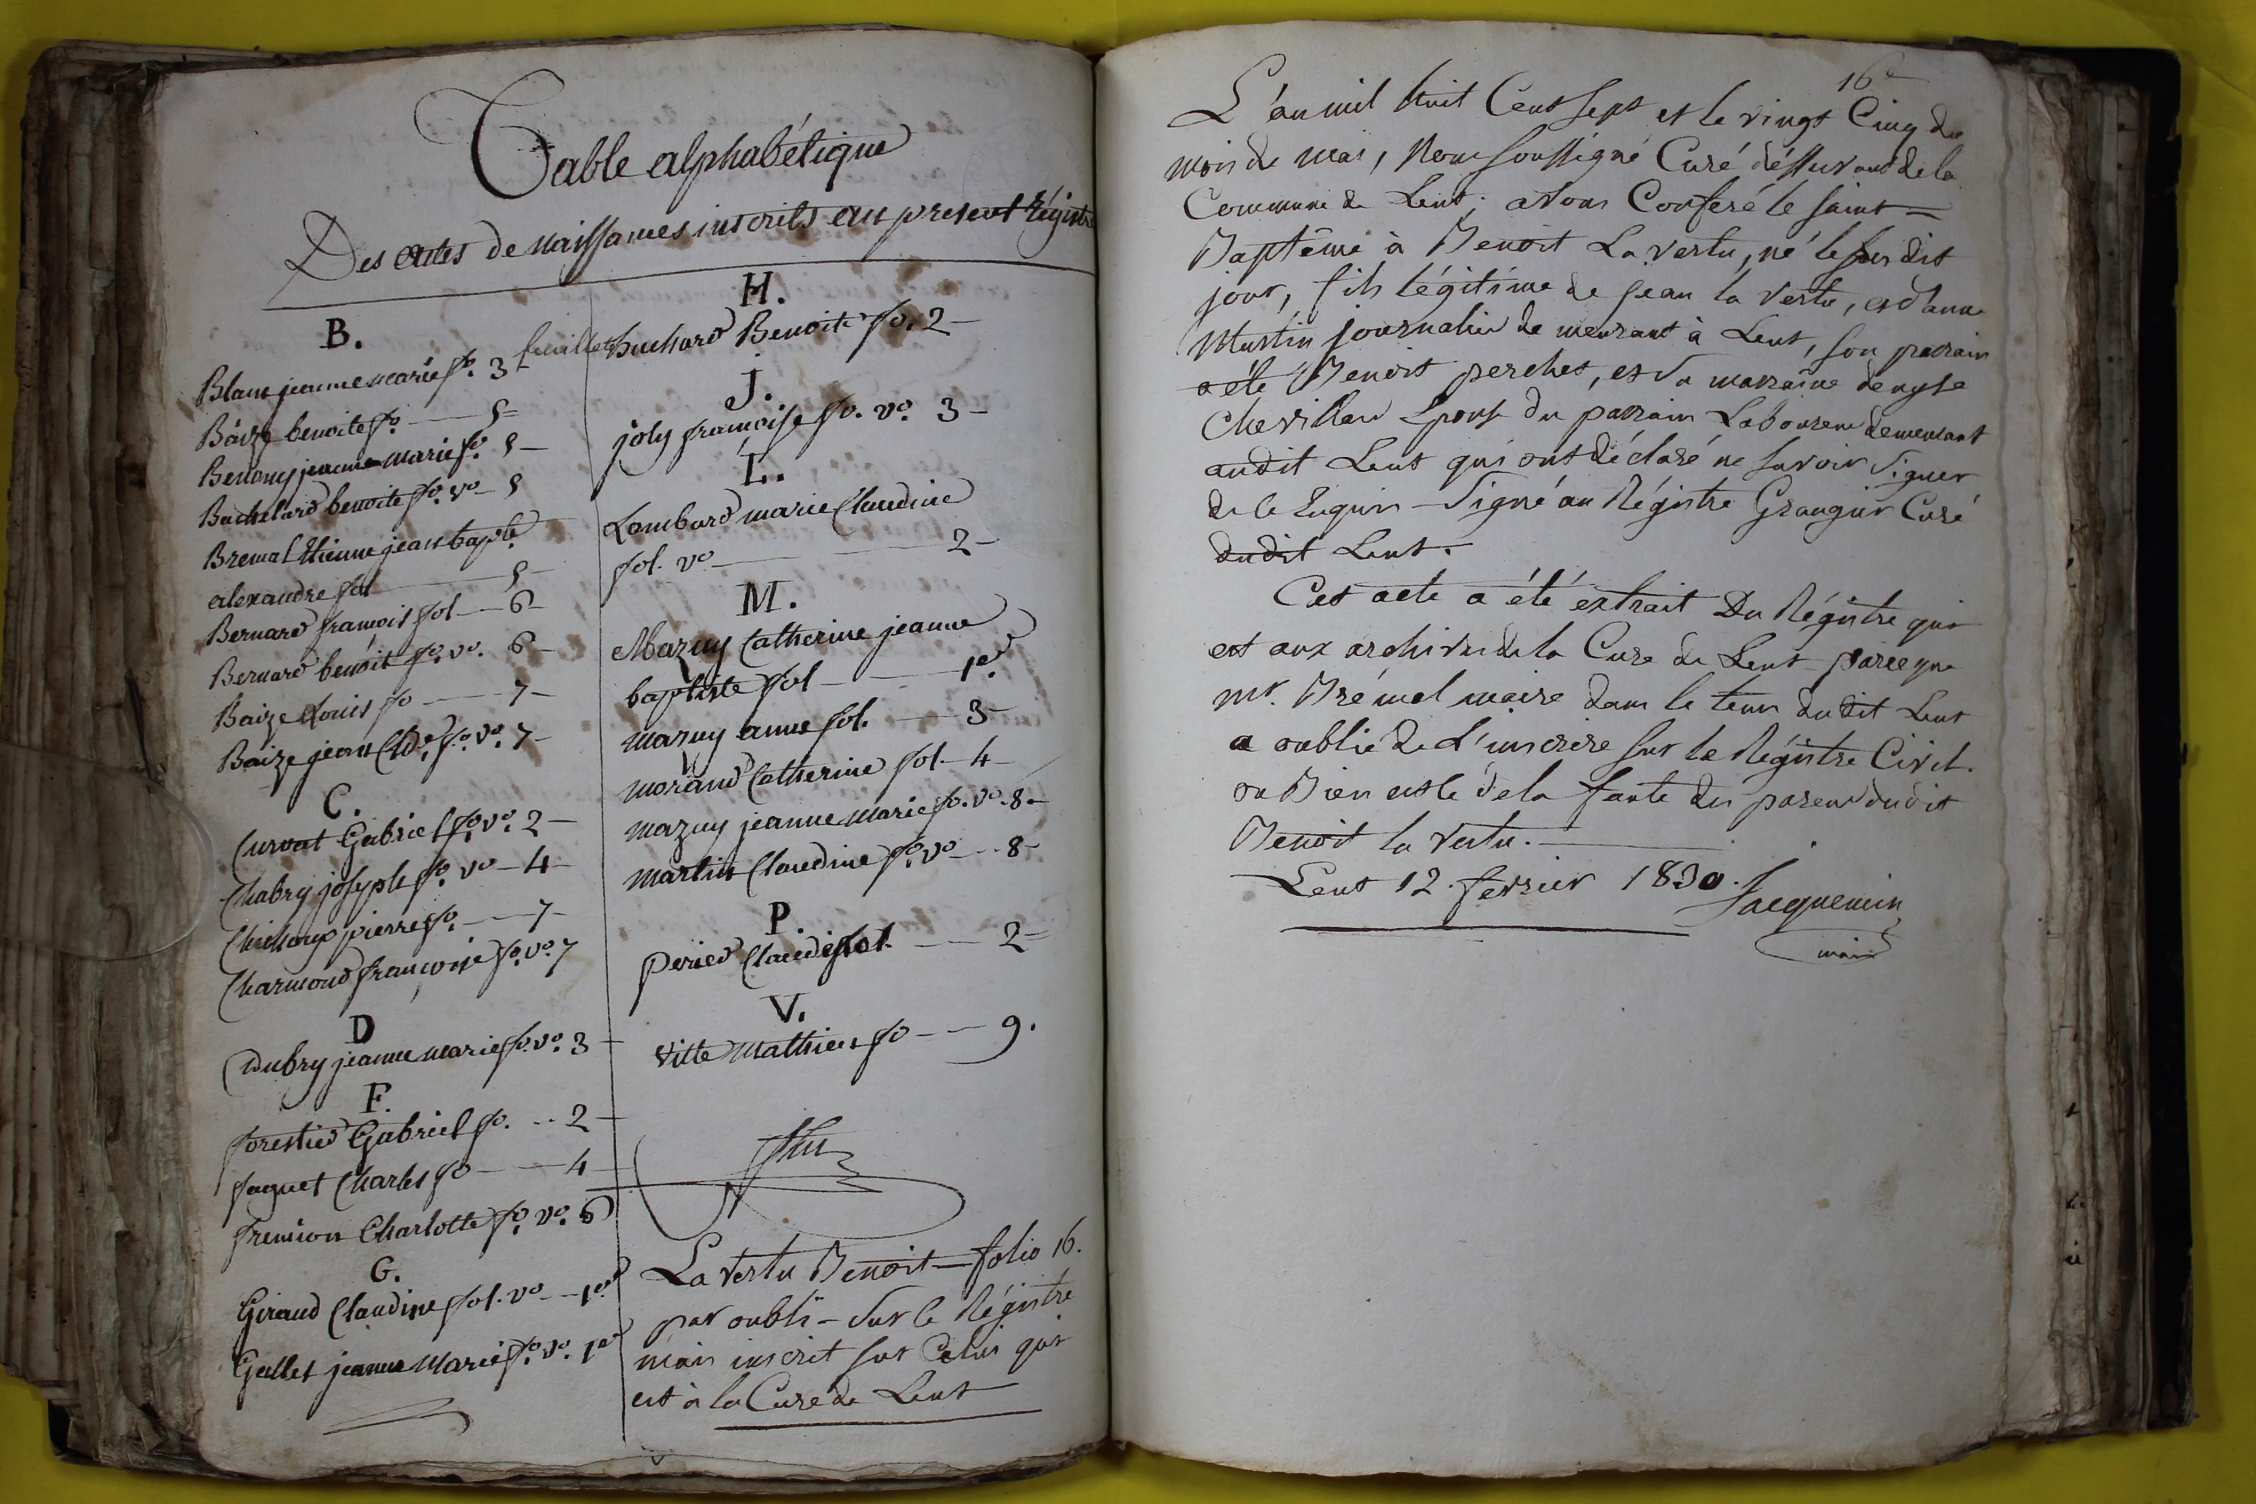 Table alphabétique
Des actes de naissances inscrits au present Régistre
B.
feuillet
Blanc jeanne marie fo. 3
Baize benoite fo. 5
Benony jeanne marie fo. 5
Bachelard benoite fo. vo 5
Bremal Etienne jean bapte
alexandre fol 5
Bernard francois fol 6
Bernard benoit fo. vo. 6
Baize Louis fo 7
Baize jean Cl.de fo. vo. 7
C.
Curvat Gabriel fo. vo. 2
Chabry joseph fo. vo 4
pierre fo. 7
Charmond françoise fo. vo. 7
D
Dubry jeanne marie fo. vo. 3
F.
forestier Gabriel fo. 2
faguet Charles fo 4
fremion Charlotte fo. vo. 6
G.
Giraud Claudine fol. vo 1er
Gallet jeanne Marie fo. vo. 1er
H.
huchard Benoite fo. 2
J.
joly francoise fo. vo 3
L.
Lombard marie Claudine
fol. vo 2
M.
Mazuy Catherine jeanne
baptiste fol 1er
mazuy anne fol. 3
morand Catherine fol. 4
mazuy jeanne Marie fo. vo. 8
martin Claudine fo. vo 8
P.
perier Claude fol. 2
V.
Ville Mathieu fo 9.
La vertu Benoit folio 16.
par oubli sur le Régistre
mais inscrit sur Celui qui
est à la Cure de Lent
16e
L'an mil huit Cent sept et le vingt Cinq du
mois de mai, Nous soussigné Curé déssurvant de la
Commune de Lent; avons Conferé le saint
Baptême à Benoit La vertu, né le sus dit
jour, fils légitime de jean la vertu, et d'anne
Martin journalier demeurant à Lent, son parrain
a été Benoit perchet, et sa marraine denyse
Chevillard Epouse du parrain Laboureur demeurant
audit Lent qui ont déclaré ne savoir signer
de le Enquis Signé au Régistre Grangier Curé
dudit Lent.
Cet acte a été extrait Du Régistre qui
est aux archives de la Cure de Lent parce que
mr. Brémal maire dans le tems dudit Lent
a oublié de L'inscrire sur le Régistre Civil.
ou Bien est le de la faute des parens dudit
Benoit la vertu.
Lent 12 fevrier 1830.
Jacquemin
maire